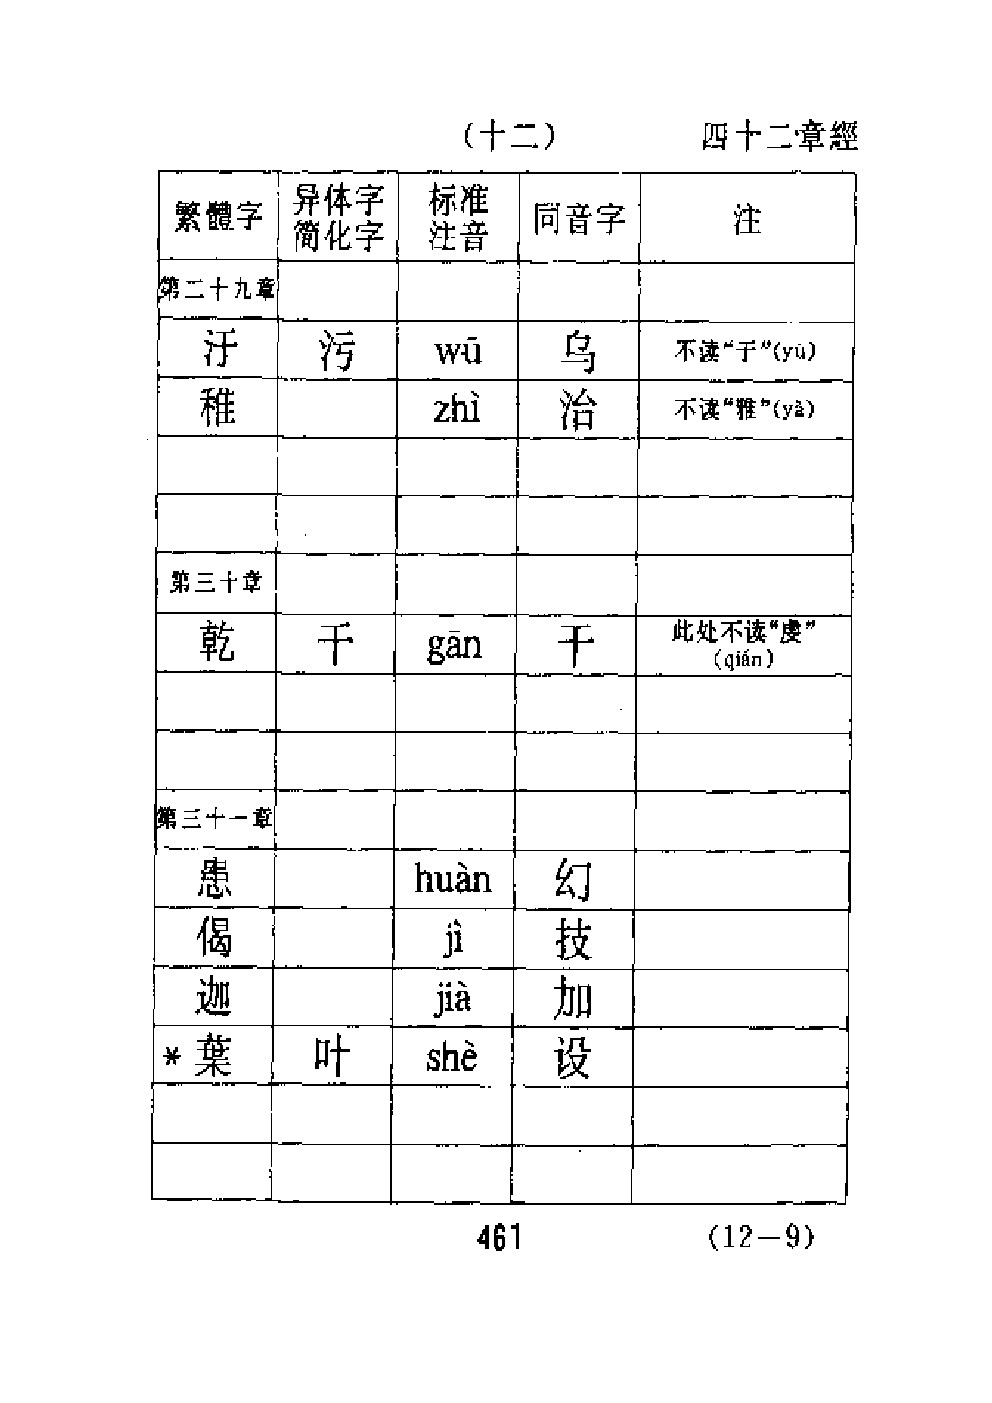 (十二) 四十二章經
繁體字 异体字简化字 标准注音 同音字 注
第二十九章
汙 污 wū 乌 不读“于”(yú)
稚 zhì 治 不读“雅”(yǎ)
第三十章
乾 干 gān 干 此处不读“虔”(qián)
第三十一章
患 huàn 幻
偈 jì 技
迦 jià 加
*葉 叶 shè 设
461 (12－9)